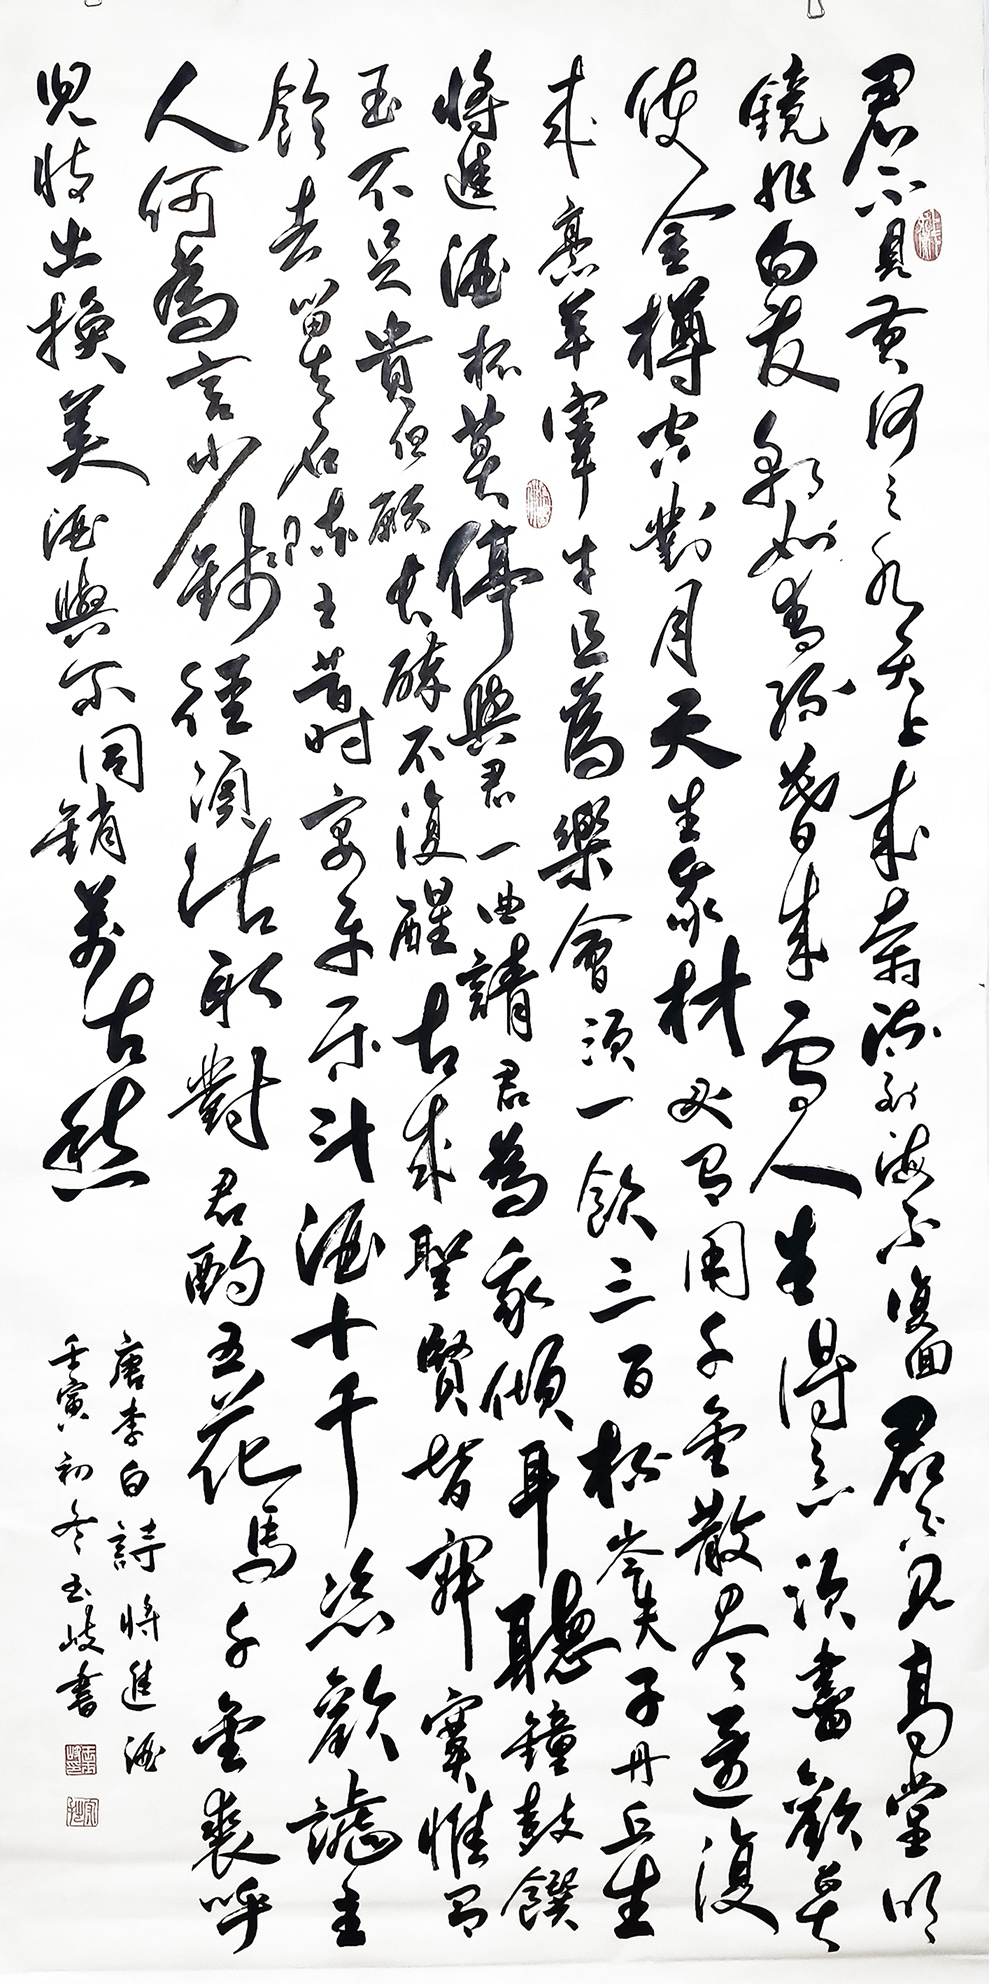 君不见黄河之水天上来奔流到海不復回君不见高堂明
镜悲白发朝如青丝暮成雪人生得意须尽歡莫
使金樽空對月天生我材必有用千金散尽还復
来烹羊宰牛且為樂會须一飲三百杯岑夫子丹丘生
將進酒杯莫停與君一曲請君為我傾耳聽鐘鼓饌
玉不足貴但願長醉不復醒古来聖賢皆寂寞惟有
飲者留其名陈王昔时宴平乐斗酒十千恣歡謔主
人何為言少錢徑须沽取對君酌五花馬千金裘呼
児將出換美酒與尔同銷萬古愁
唐李白詩將進酒
壬寅初冬玉岐書